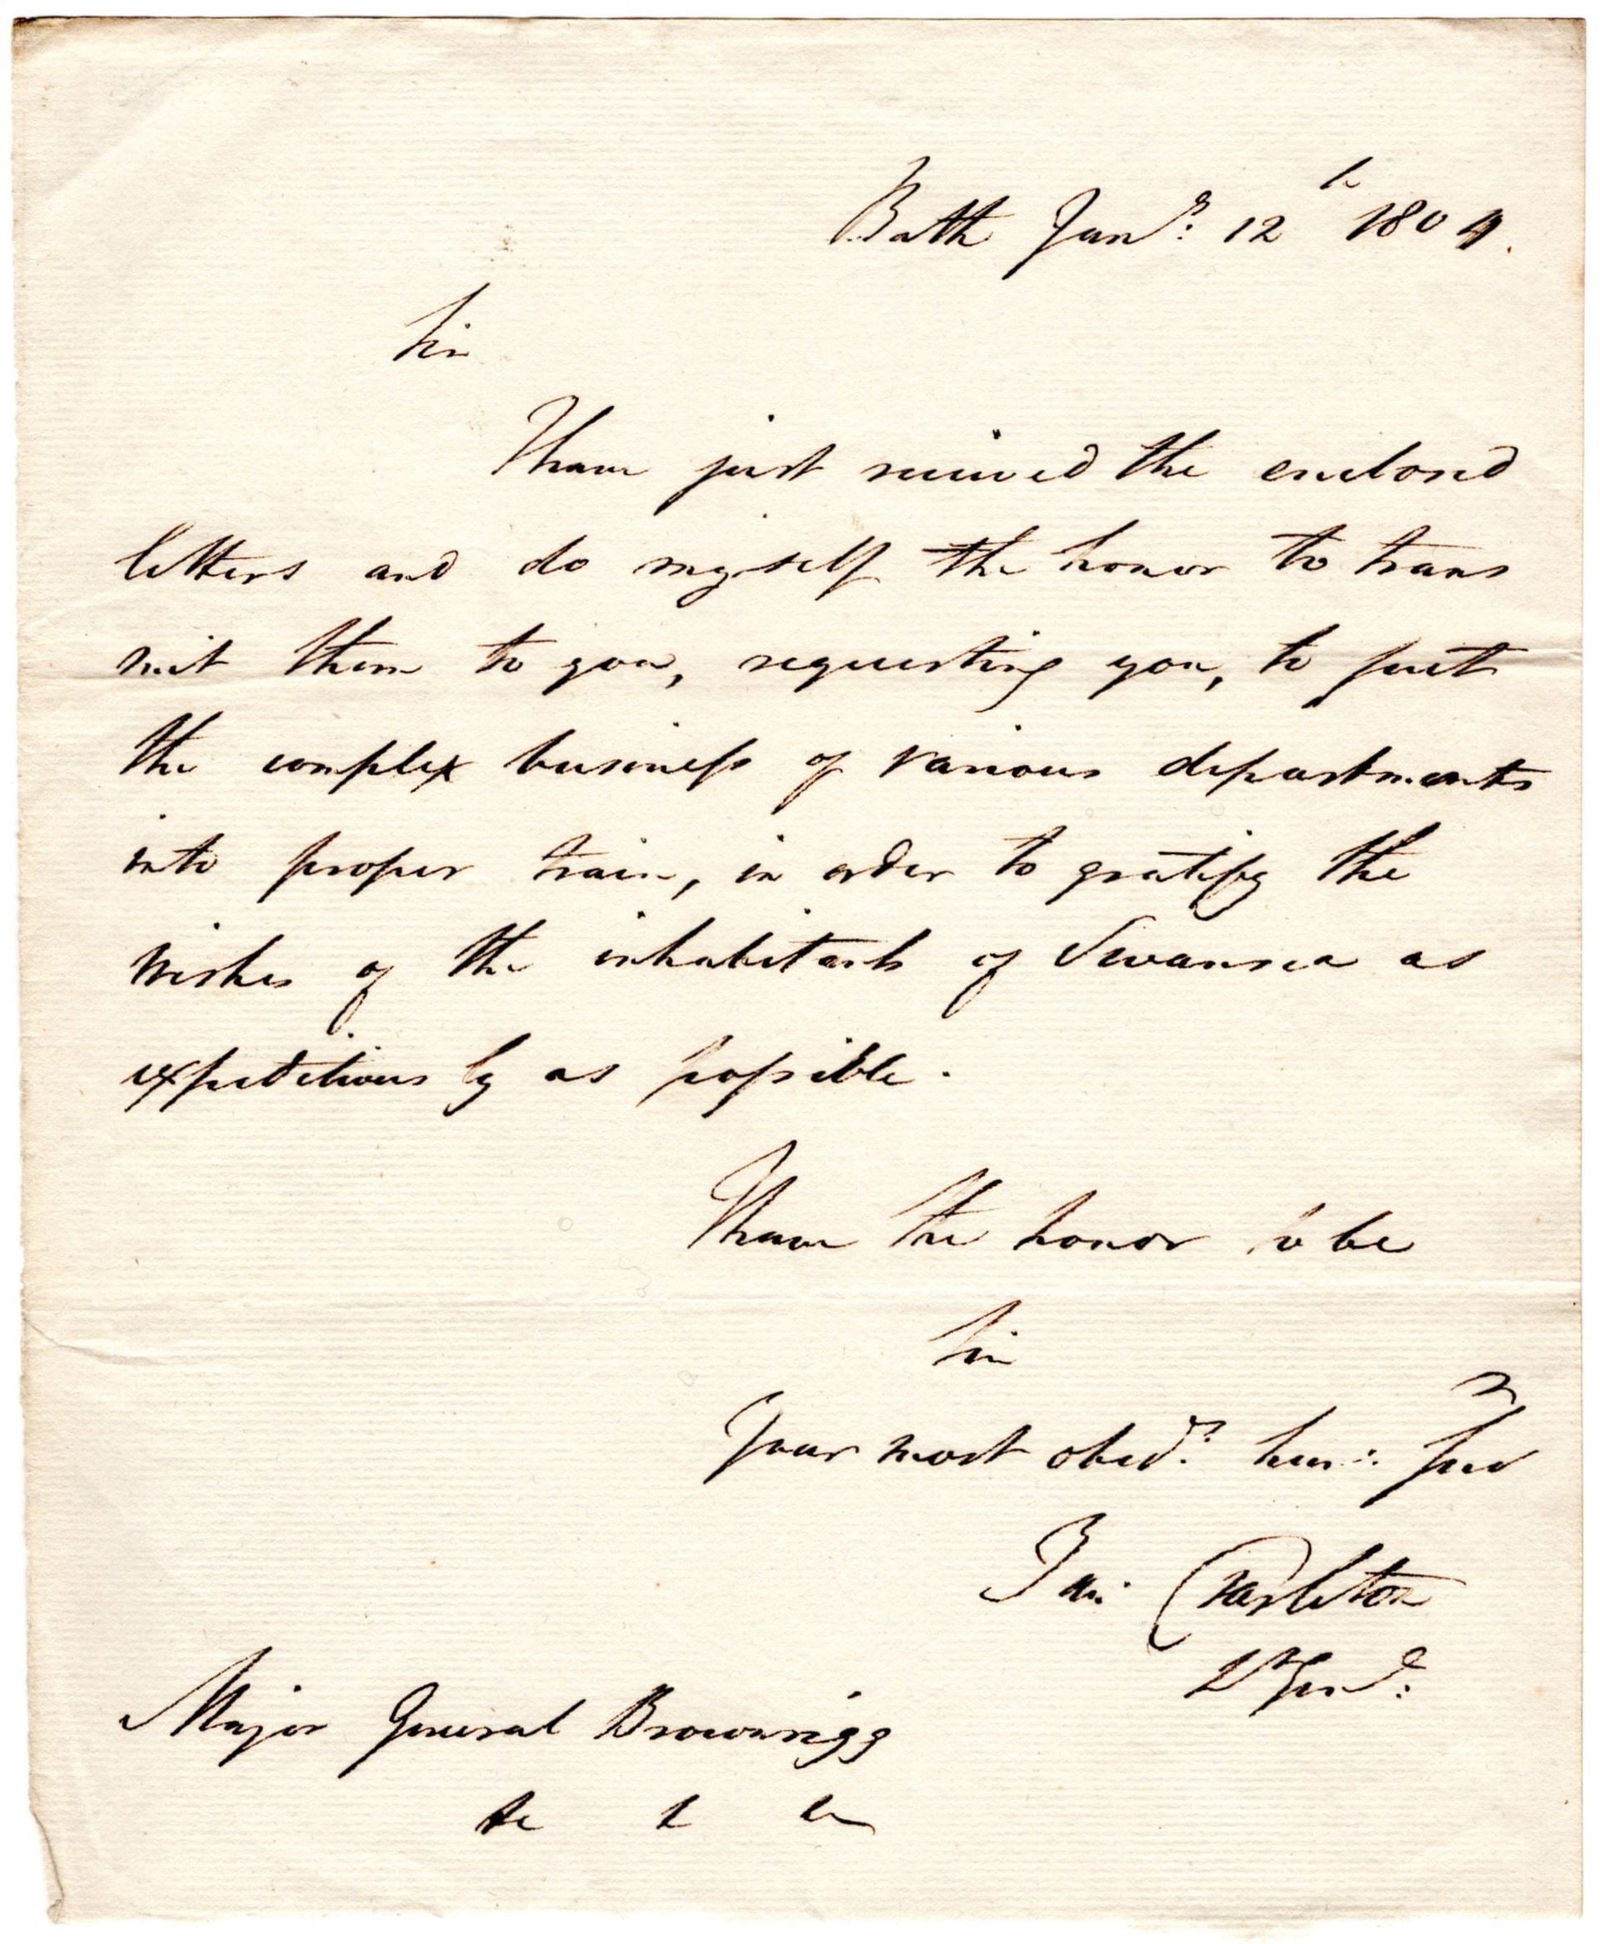 Bath Jan.y: 12th 1804.
Sir
I have just received the enclosed
letters and do myself the honor to trans
mit them to you, requesting you, to put
the complex business of various departments
into proper train, in order to gratify the
wishes of the inhabitants of Swansea as
expeditiously as possible.
I have the honor to be
Sir
Your most obed.t: hum: Ser
Tarleton
Lt Genl:
Major General Brownrigg
&c & &c